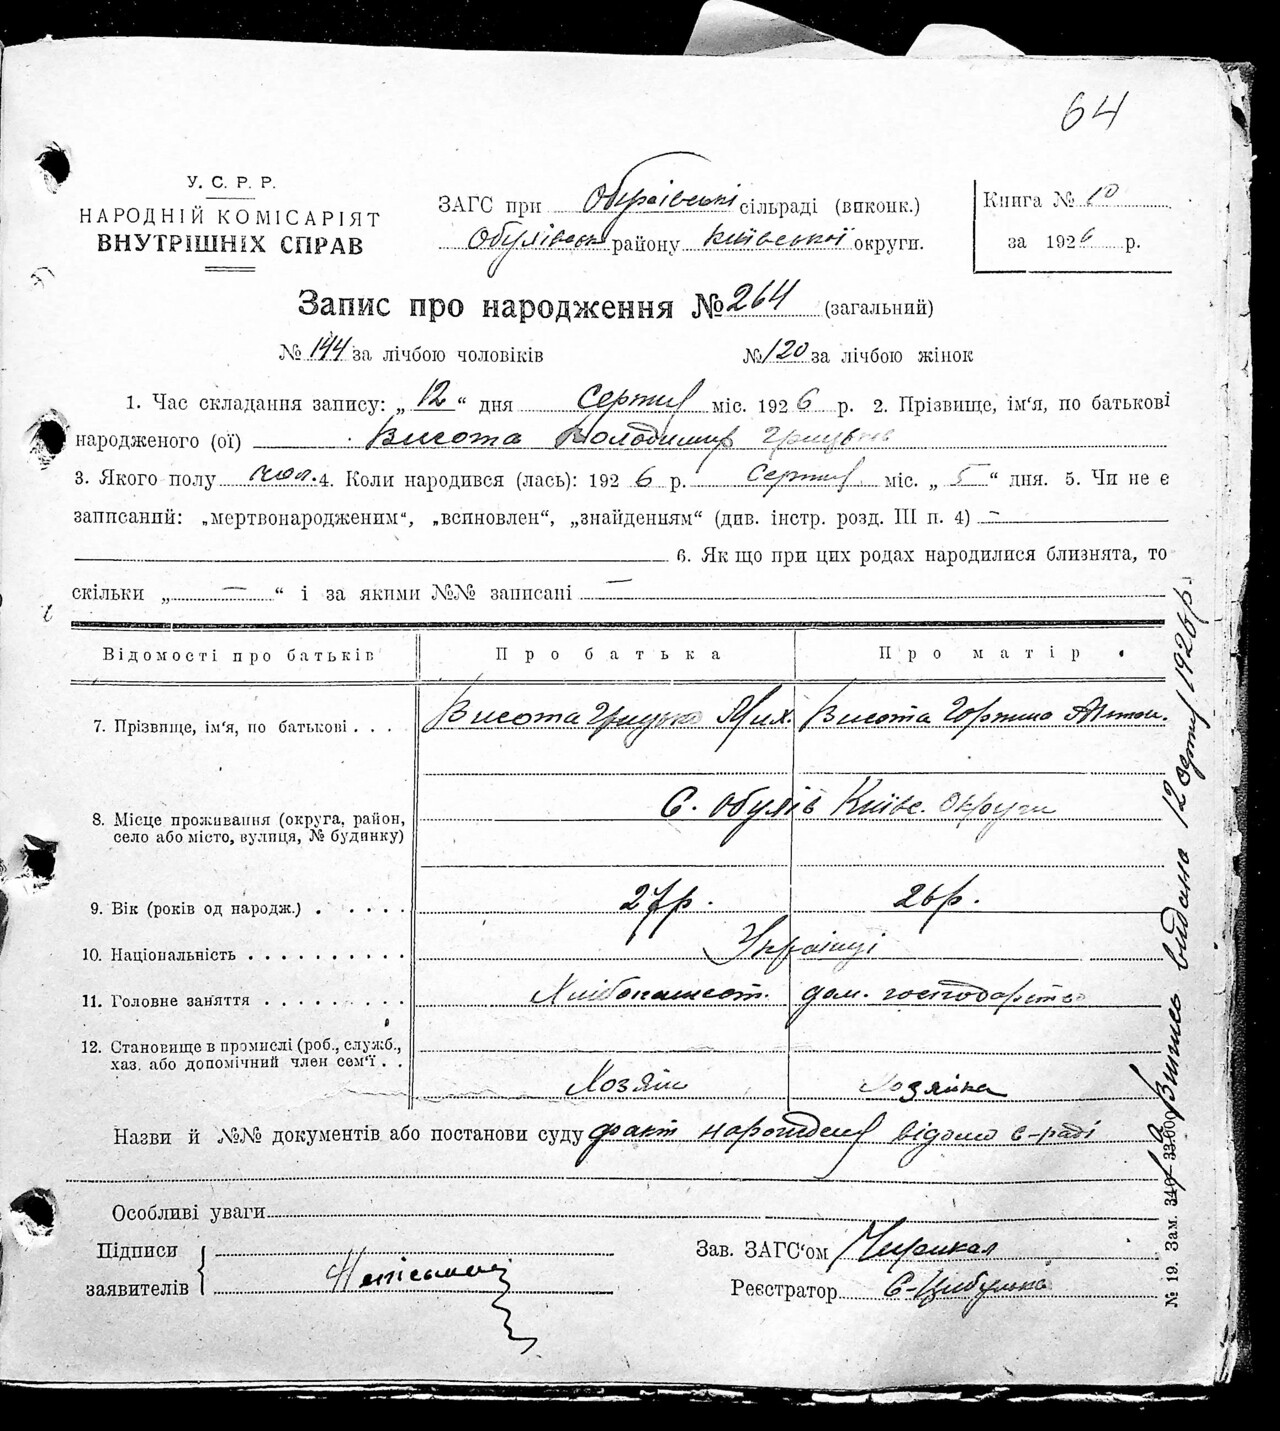 64
У. С. Р. Р.
НАРОДНІЙ КОМІСАРІЯТ
ВНУТРІШНІХ СПРАВ
ЗАГС при сільраді (виконк.)
району Київської округи.
Книга № 10
за 1926 р.
Запис про народження № 264 (загальний)
№ 144 за лічбою чоловіків № 120 за лічбою жінок
1. Час складання запису: „12“ дня Серпня міс. 1926 р. 2. Прізвище, ім'я, по батькові
народженого (ої) Висота Володимир Грицьків
3. Якого полу чол. 4. Коли народився (лась): 1926 р. Серпня міс. „5“ дня. 5. Чи не є
записаний: „мертвонародженим“, „всиновлен“, „знайденням“ (див. інстр. розд. III п. 4) —
6. Як що при цих родах народилися близнята, то
скільки „ — “ і за якими №№ записані —
Відомості про батьків Про батька Про матір
7. Прізвище, ім'я, по батькові . . . Висота Грицько Мих. Висота Антон.
8. Місце проживання (округа, район,
село або місто, вулиця, № будинку) С. Київс. Округи
9. Вік (років од народж.) . . . . . 27р. 26р.
10. Національність . . . . . . . . . . Українці
11. Головне заняття . . . . . . . . . дом. господарство
12. Становище в промислі (роб., служб.,
хаз. або допомічний член сем'ї . . Хозяїн Хозяйка
Назви й №№ документів або постанови суду факт народження відомо с-раді
Особливі уваги
Підписи
заявителів { Неписьмений
Зав. ЗАГС'ом
Реєстратор С. Цибулько
№ 19. Зам.
Випись видана 12 серпня 1926 р.